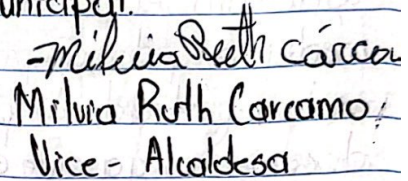 unicipal.
-Milvia Ruth Cárcam
Milvia Ruth Carcamo.
Vice- Alcaldesa